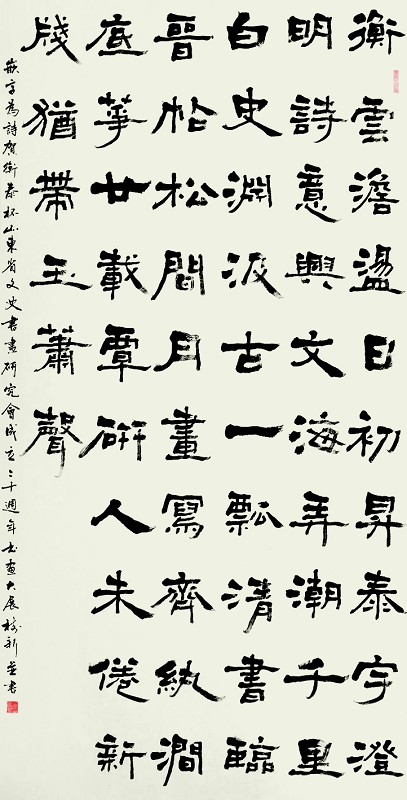 衡雲澹盪日初昇泰宇澄
明詩意興文海弄潮千里
白史淵汲古一瓢清書臨
晉帖松間月畫寫齊紈澗
底華廿載覃研人未倦新
牋猶帶玉蕭聲
嵌字為詩賀衡泰杯山東省文史書畫研究會成立二十週年書畫大展新並書